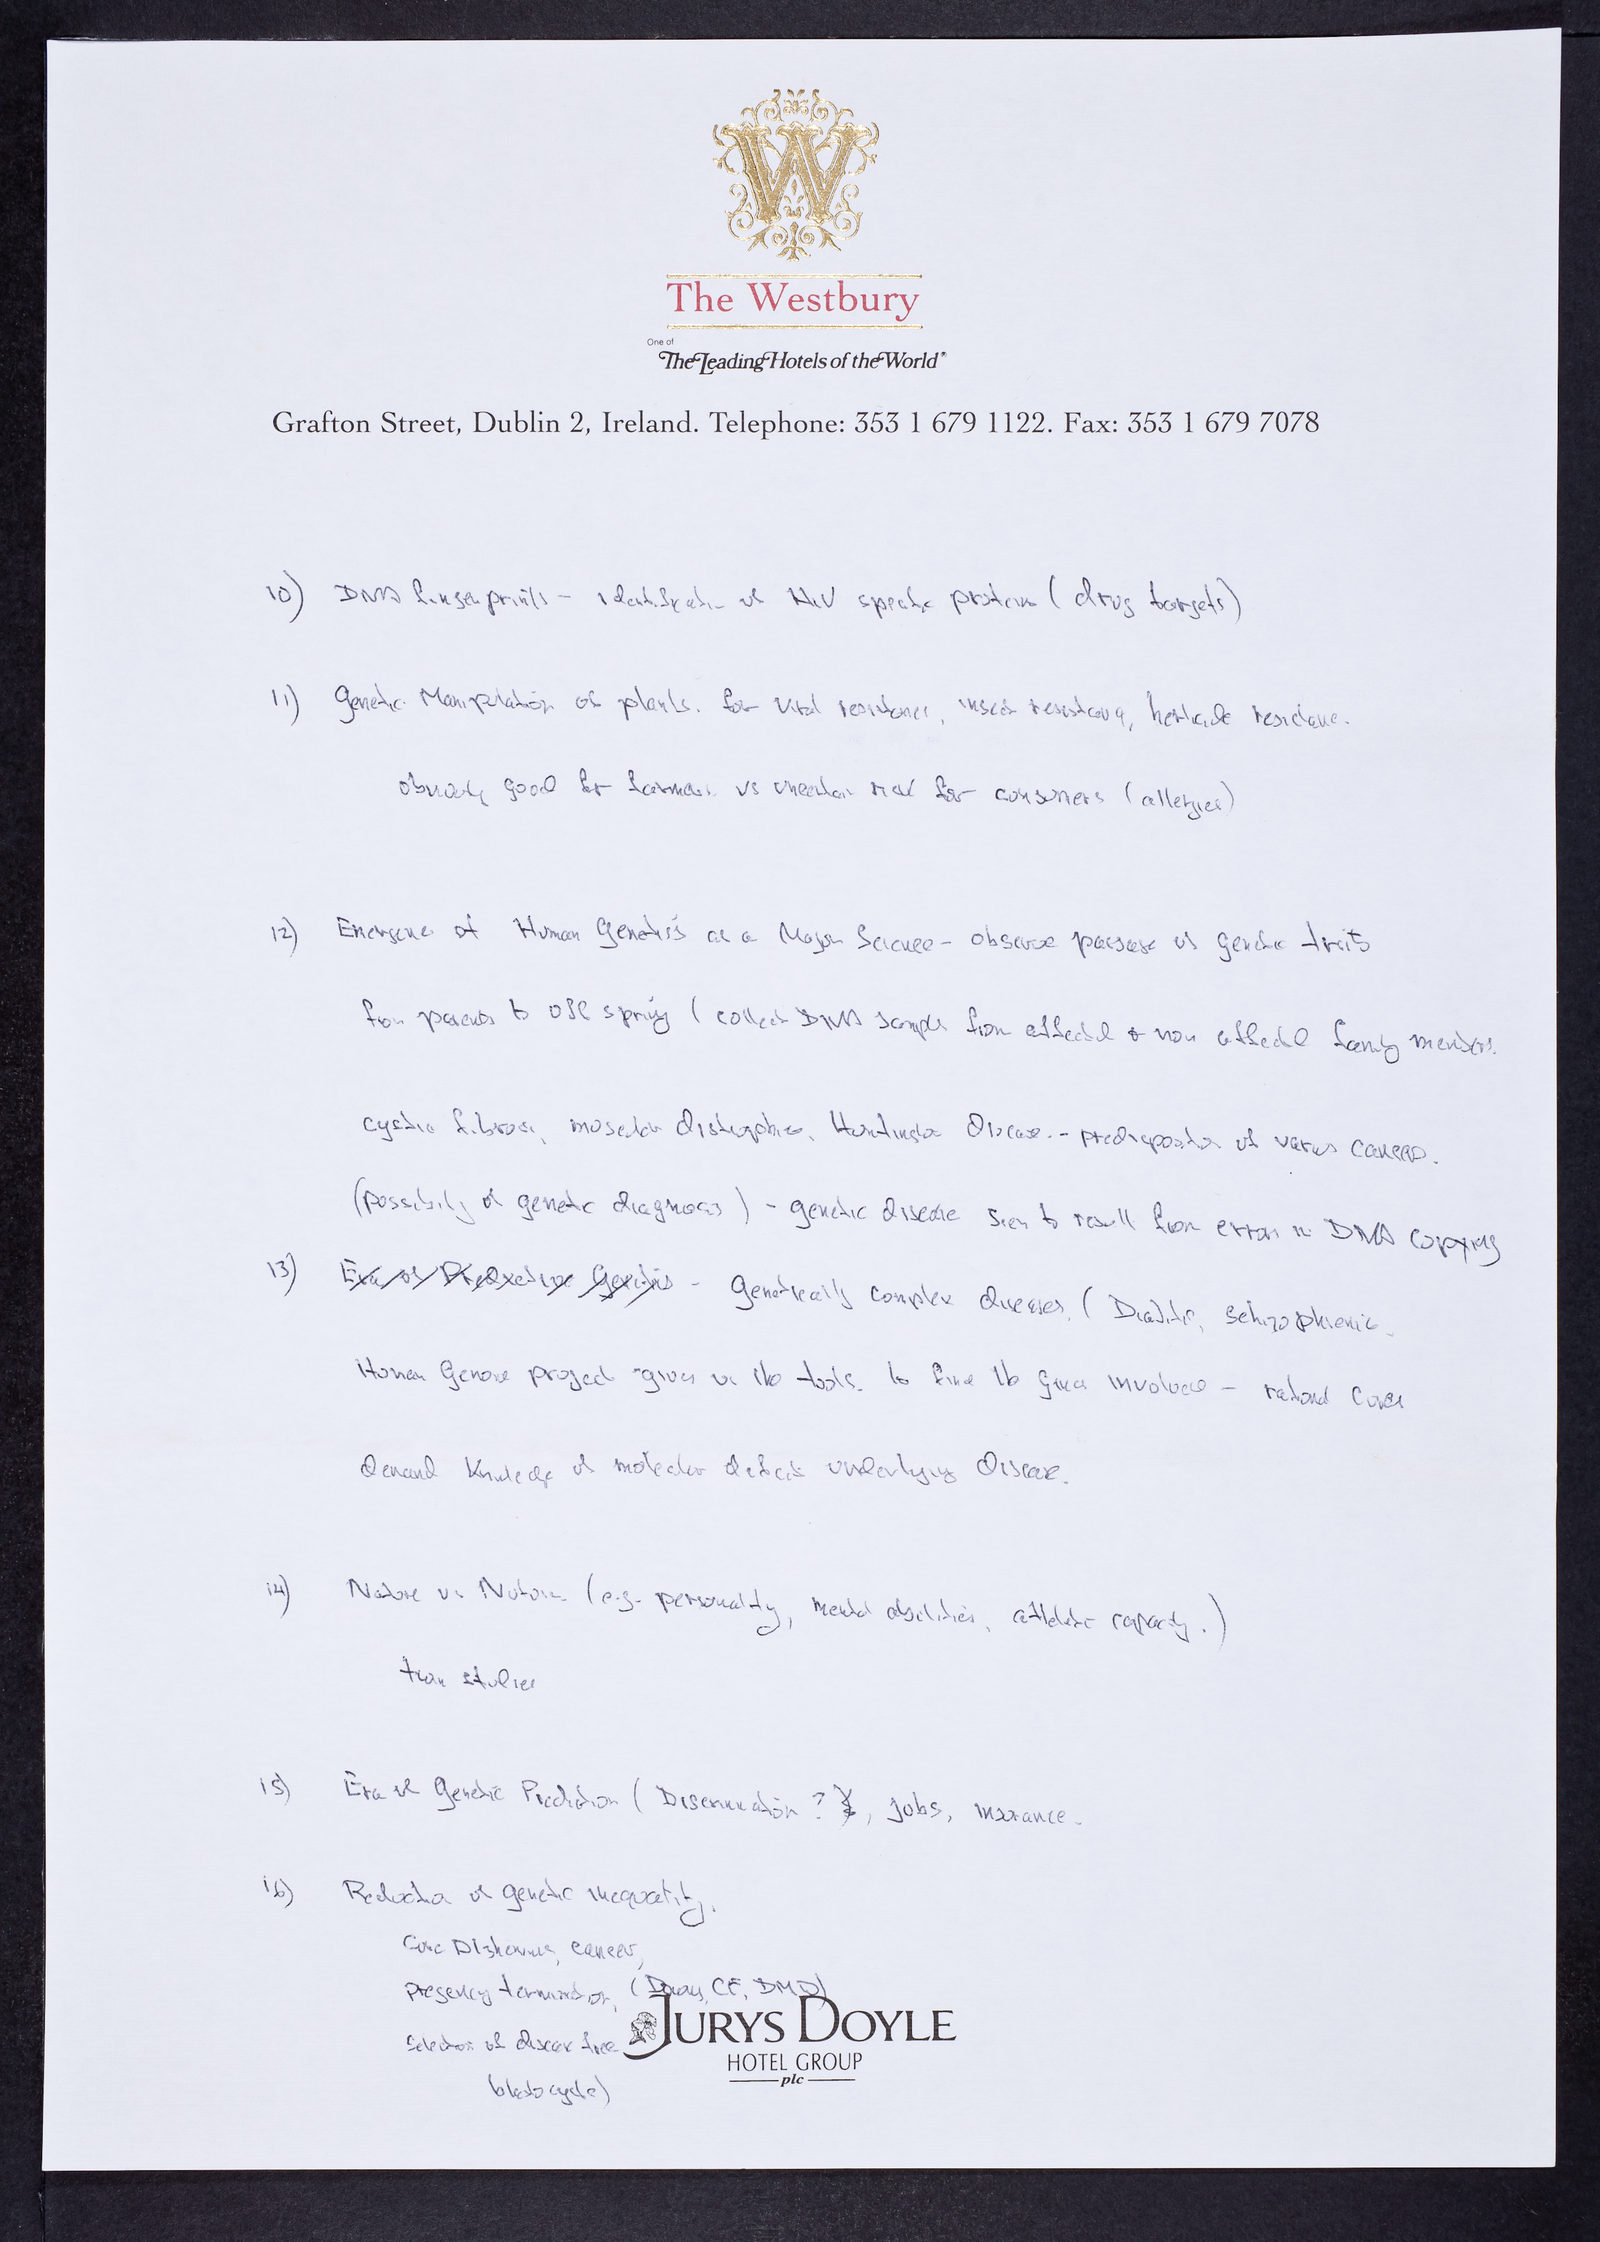 W
The Westbury
One of
The Leading Hotels of the World®
Grafton Street, Dublin 2, Ireland. Telephone: 353 1 679 1122. Fax: 353 1 679 7078
10) DNA fingerprints - identification of HIV specific proteins (drug targets)
11) Genetic Manipulation of plants. for viral resistance, insect resistance, herbicide resistance.
obviously good for farmers vs uncertain risk for consumers (allergies)
12) Emergence of Human Genetics as a Major Science - observe passage of genetic traits
from parents to offspring (collect DNA samples from affected & non affected family members.
cystic fibrosis, muscular distrophies, Huntington Disease. - predisposition of various cancers.
(possibility of genetic diagnosis) - genetic disease seen to result from errors in DNA copying
13) Era of Predictive Genetics - Genetically complex diseases, (Diabetes, schizophrenia.
Human Genome project - gives us the tools. to find the genes involved - rational cures
demand knowledge of molecular defects underlying Disease.
14) Nature vs Nurture (e.g. personality, mental abilities, athletic capacity.)
twin studies
15) Era of Genetic Prediction (Discrimination?, jobs, insurance.
16) Reduction of genetic inequality.
Cure Alzheimers, cancer,
pregnancy termination, (Downs, CF, DMD)
selection of disease free
blastocysts)
JURYS DOYLE
HOTEL GROUP
plc